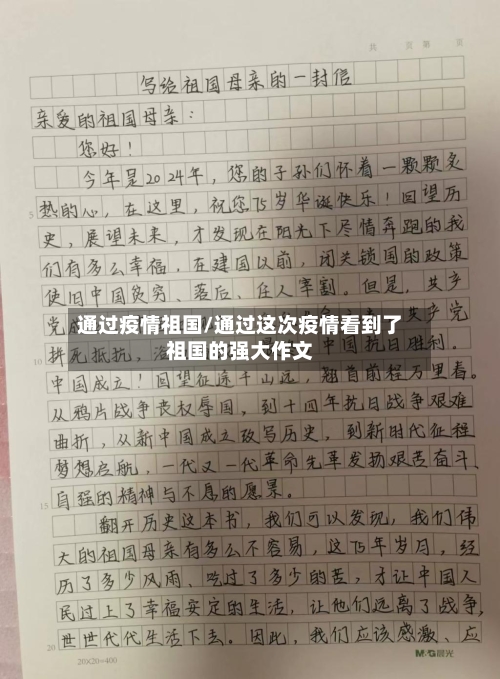 共 页 第 页
写给祖国母亲的一封信
亲爱的祖国母亲：
您好！
今年是2024年，您的子孙们怀着一颗颗炙
热的心，在这里，祝您75岁华诞快乐！回望历
5
史，展望未来，才发现在阳光下尽情奔跑的我
们有多么幸福，在建国以前，闭关锁国的政策
使旧中国贫穷、落后、任人宰割。但是，共产
党
通过疫情祖国/通过这次疫情看到了
祖国的强大作文
产党
拼死抵抗，
中国抗日胜利。
中国成立！回望征途千山远，翘首前程万里春。
从鸦片战争丧权辱国，到十四年抗日战争艰难
曲折，从新中国成立改写历史，到新时代征程
梦想启航，一代又一代革命先辈发扬艰苦奋斗、
自强的精神与不息的愿景。
15
翻开历史这本书，我们可以发现，我们伟
大的祖国母亲有多么不容易，这75年岁月，经
历了多少风雨、吃过了多少的苦，才让中国人
民过上了幸福安定的生活，让他们远离了战争，
世世代代生活下去。因此，我们应该感激、应
20
20×20=400
M&G晨光